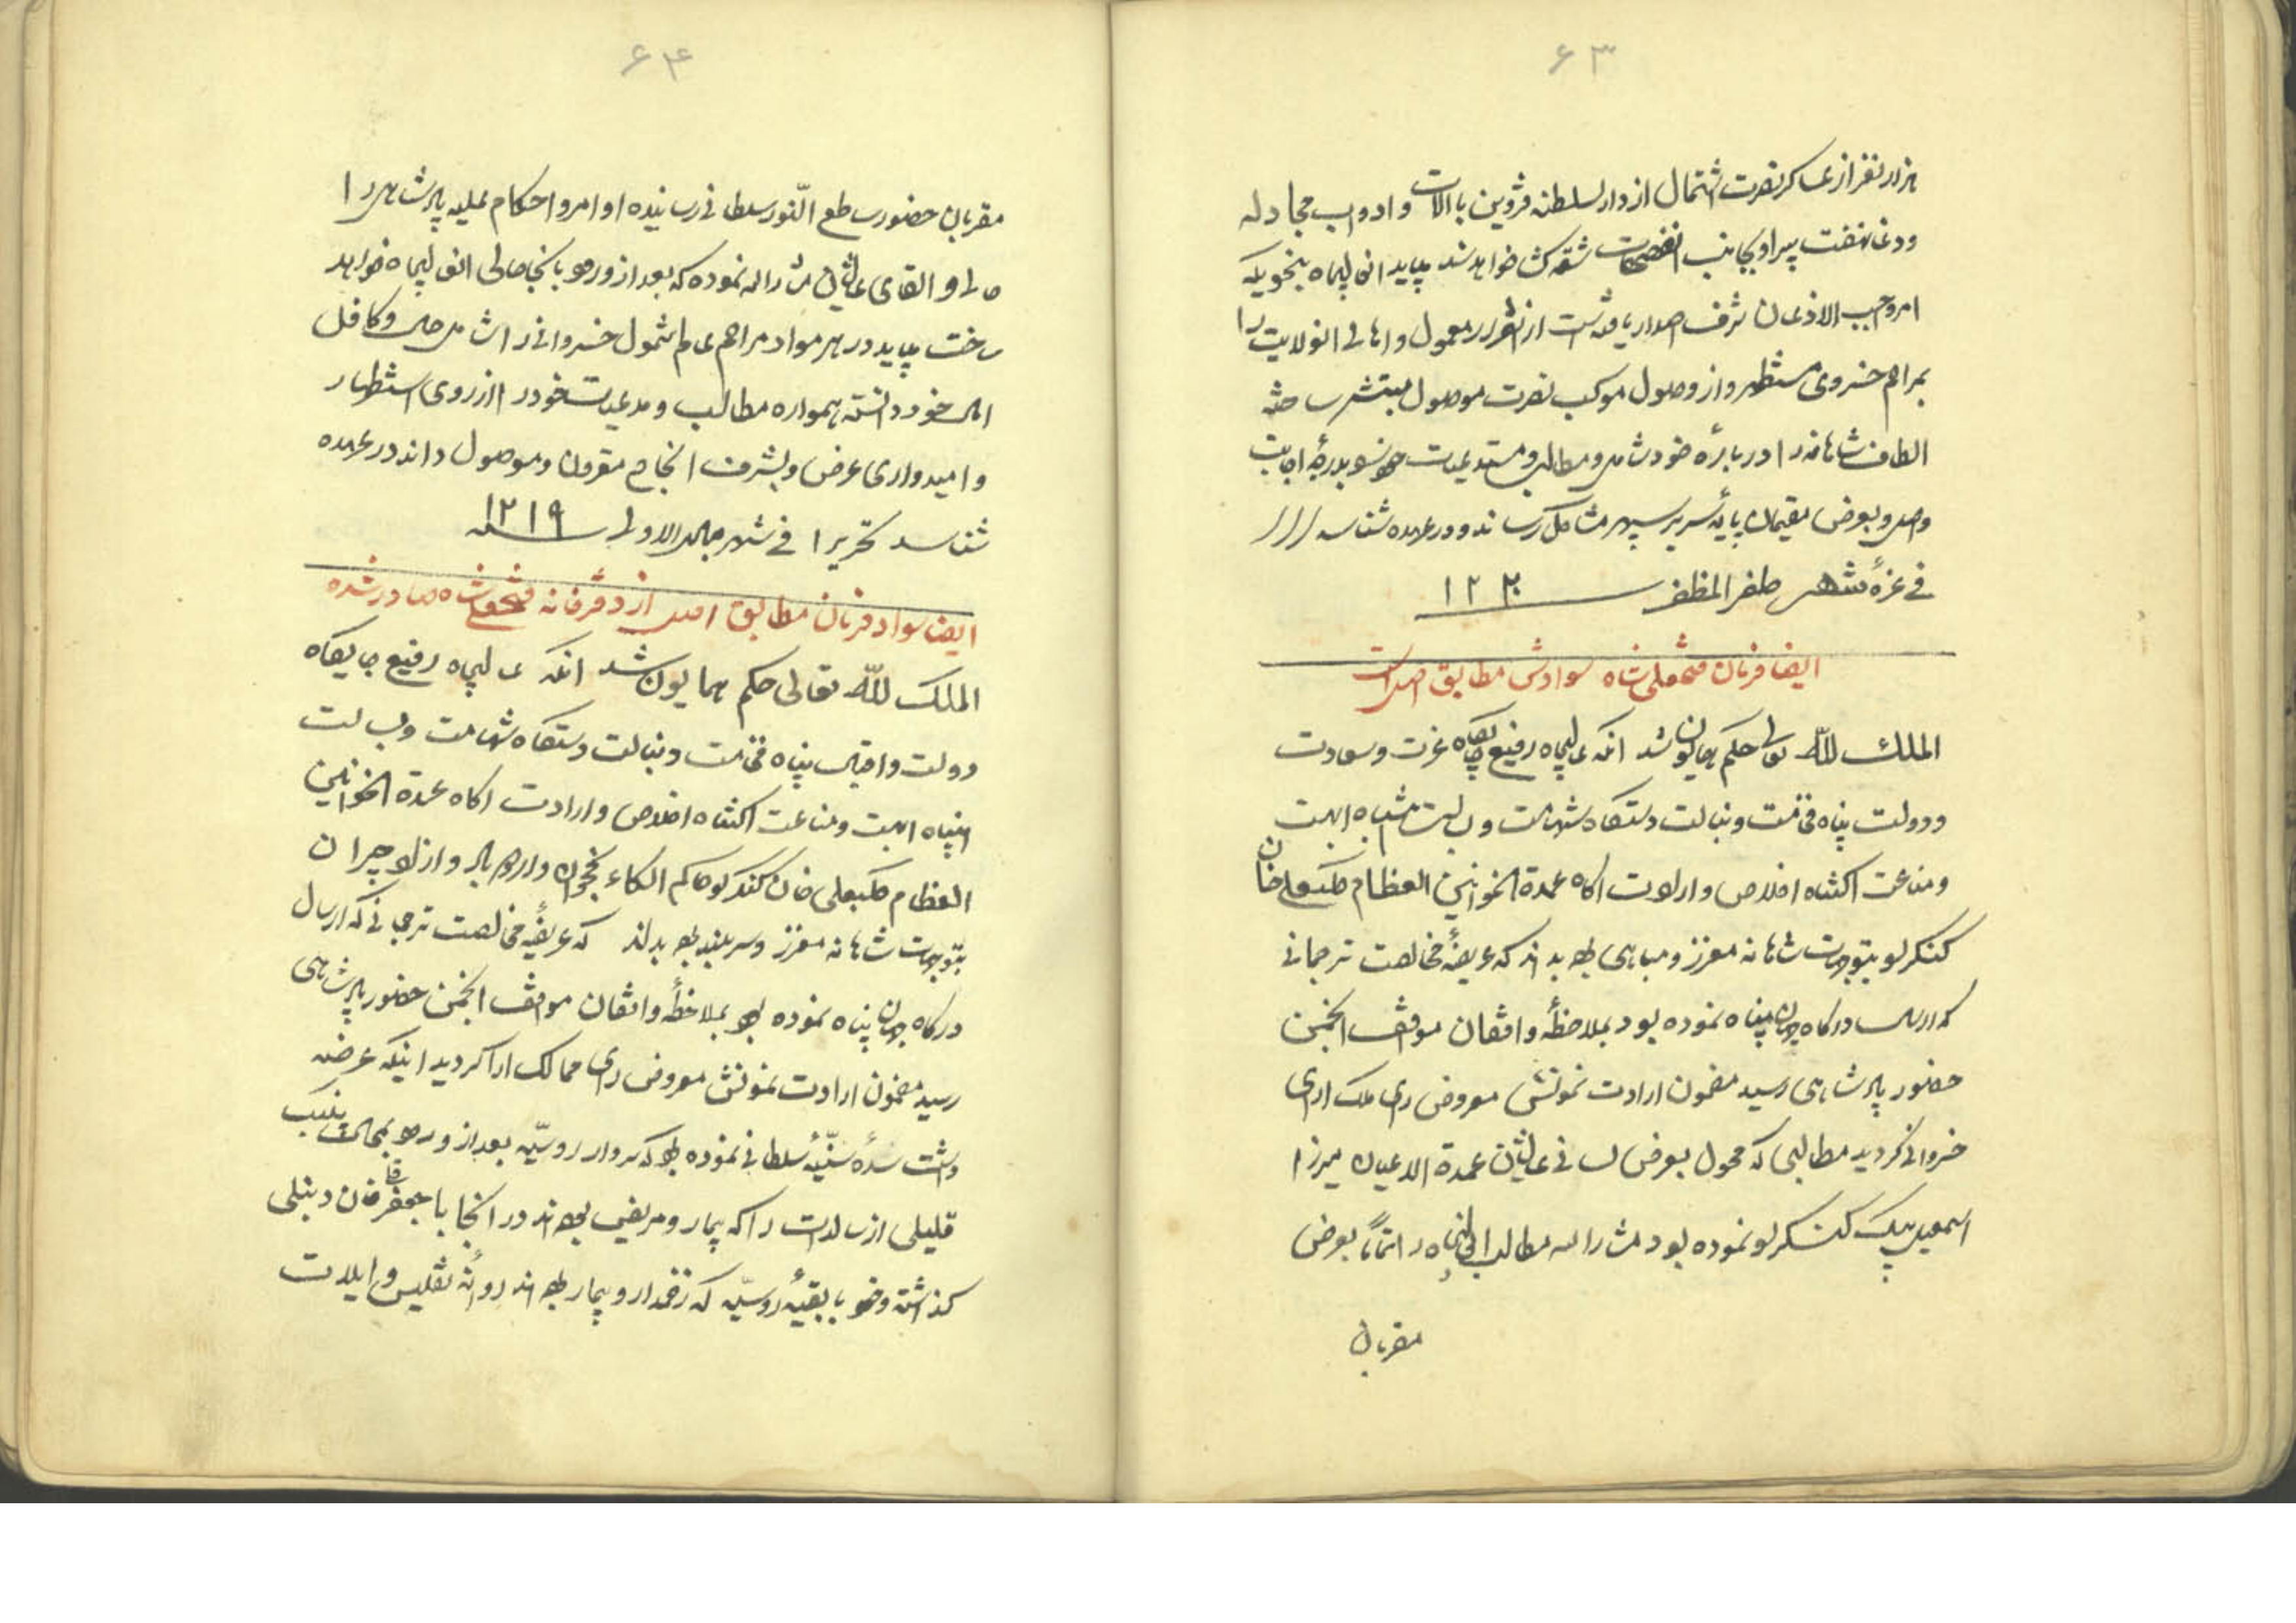 ۶۳
هزار نفر از عساکر نصرت اشتمال از دار السلطنه قزوین با آلات و ادوات مجادله
و دغا نهضت پیرا و بجانب انصفحات شقه کشا خواهند شد میباید ان عالیجاه بنحویکه
امر واجب الاذعان شرف اصدار یافته است از انقرار معمول و اهالی انولایت را
بمراحم خسروی مستظهر و از وصول موکب نصرت موصول مبتشر ساخته
الطاف شاهانه را در باره خود شامل و مطالب و مستدعیات خود بدرجه اجابت
واصل و بعرض مقیمان پایه سریر سپهر مشاکل رساند و در عهده شناسد
فی غره شهر صفر المظفر سنه ۱۲۲۰
ایضا فرمان فتحعلی شاه سوادش مطابق اصل است
الملک لله تعالی حکم همایون شد انکه عالیجاه رفیع جایگاه عزت و سعادت
و دولت پناه فخامت و نبالت دستگاه شهامت و بسالت انتباه ابهت
و مناعت اکتناه اخلاص و ارادت اکاه عمدة الخوانین العظام کلبعلی خان
کنکرلو بتوجهات شاهانه معزز و مباهی بوده بداند که عریضه مخالصت ترجمانی
که ارسال درکاه جهان پناه نموده بود بملاحظه واقفان موقف انجمن
حضور پادشاهی رسید مضمون ارادت نمونش معروض رای ملک ارای
خسروانی کردید مطالبی که محول بعرض لسانی عالیشان عمدة الاعیان میرزا
اسمعیل بیک کنکرلو نموده بود مشارالیه مطالب انعالیجاه را تماما بعرض
مقربان
۶۴
مقربان حضور ساطع النور سلطانی رسانیده اوامر و احکام علیه پادشاهی را
حالی و القای عالیشان مشارالیه نموده که بعد از ورود بانجا حالی انعالیجاه خواهد
ساخت میباید در هر مواد مراحم عام الشمول خسروانی را شامل حال و کافل
امال خود دانسته همواره مطالب و مدعیات خود را از روی استظهار
و امیدواری عرض و بشرف انجاح مقرون و موصول داند در عهده
شناسد تحریرا فی شهر جمادی الاولی سنه ۱۲۱۹
ایضا سواد فرمان مطابق اصل از دفرخانه فتحعلی شاه صادر شده
الملک لله تعالی حکم همایون شد انکه عالیجاه رفیع جایگاه
دولت و اقبال پناه فخامت و نبالت دستگاه شهامت و بسالت
انتباه ابهت و مناعت اکتناه اخلاص و ارادت اکاه عمدة الخوانین
العظام کلبعلی خان کنکرلو حاکم الکاء نخجوان و اردوباد و ازادجیران
بتوجهات شاهانه معزز و سربلند بوده بداند که عریضه مخالصت ترجمانی که ارسال
درکاه جهان پناه نموده بود بملاحظه واقفان موقف انجمن حضور پادشاهی
رسید مضمون ارادت نمونش معروض رای ممالک ارا کردید اینکه عرضه
داشت سده سنیه سلطانی نموده بود که سردار روسیه بعد از ورود بمحالت پنبک
قلیلی از سالدات را که بیمار و مریض بوده اند در انجا با جعفر قلی خان دنبلی
کذاشته و خود با بقیه روسیه که زخمدار و بیمار بوده اند روانه تفلیس و ایلات